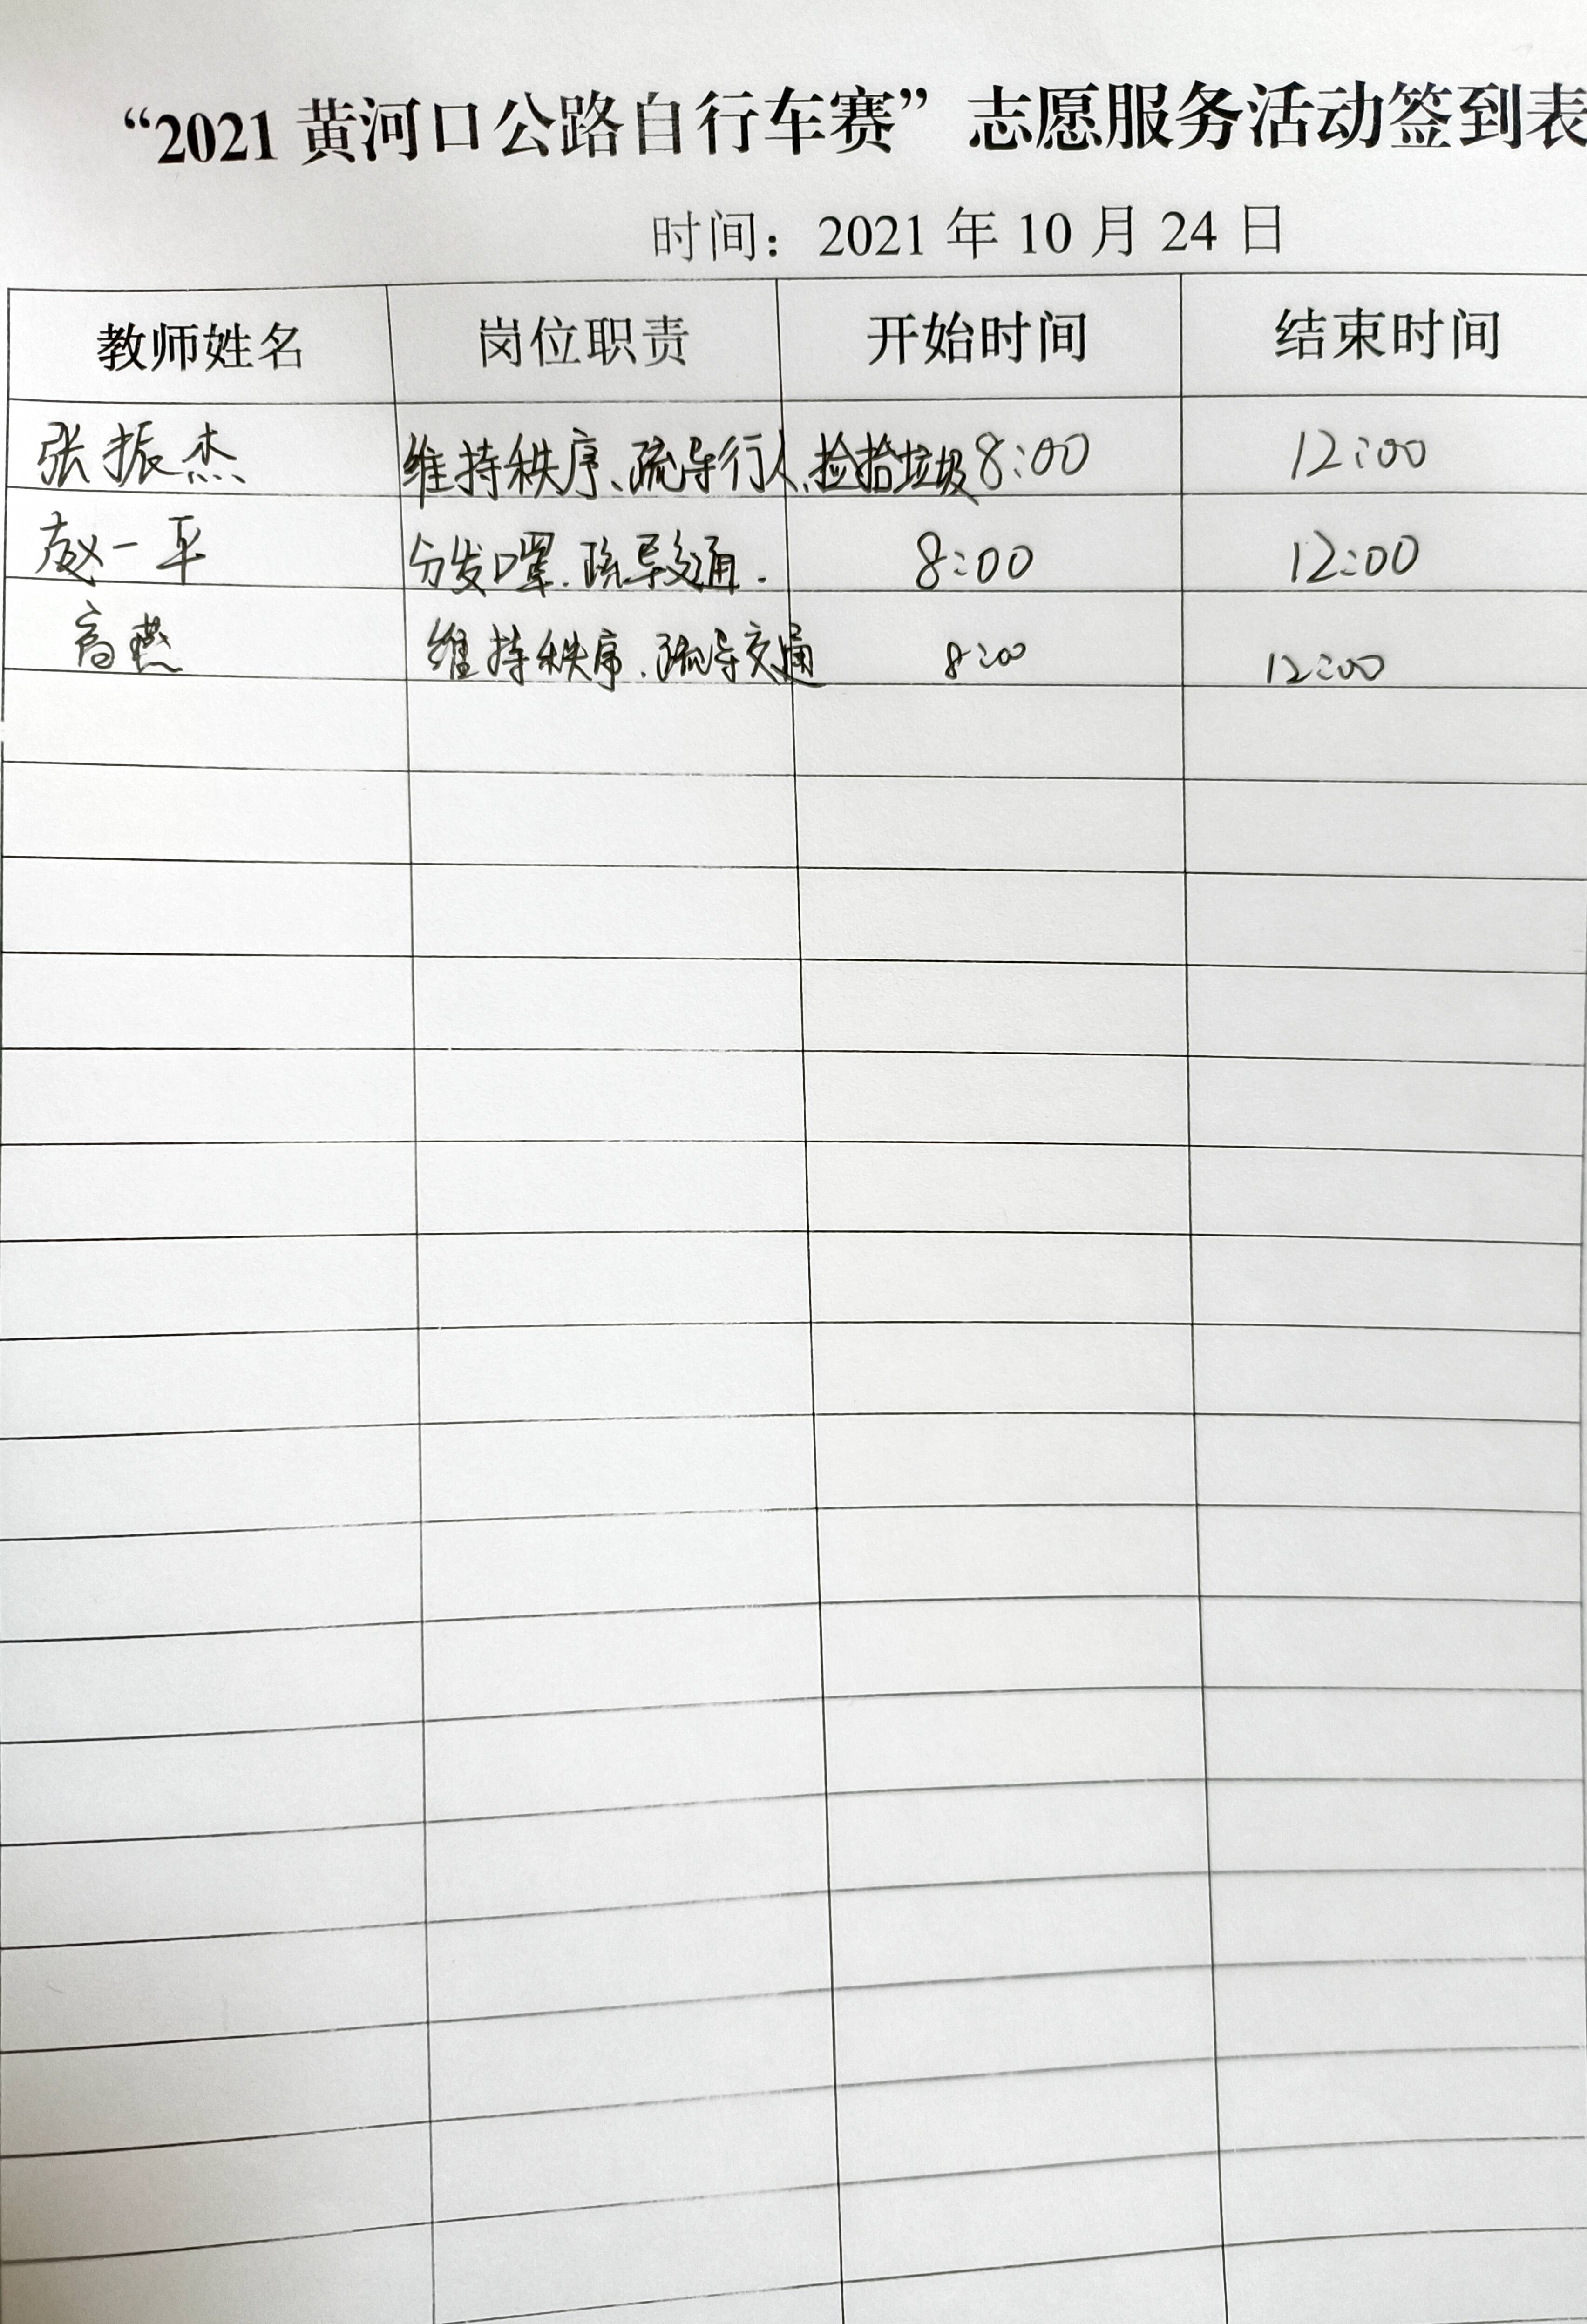 “2021 黄河口公路自行车赛”志愿服务活动签到表
时间：2021 年 10 月 24 日
教师姓名 岗位职责 开始时间 结束时间
张振杰 维持秩序、疏导行人、捡拾垃圾 8:00 12:00
赵一平 分发口罩、疏导交通. 8:00 12:00
高燕 维持秩序、疏导交通 8:00 12:00